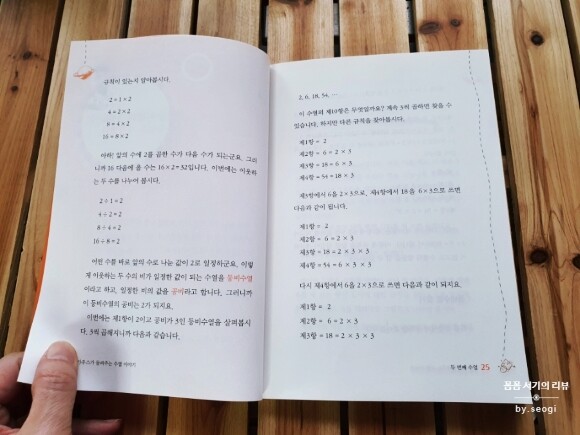 규칙이 있는지 알아봅시다.
2 ÷ 1 = 2
4 = 2 × 2
8 = 4 × 2
16 = 8 × 2
아하! 앞의 수에 2를 곱한 수가 다음 수가 되는군요. 그러
니까 16 다음에 올 수는 16×2=32입니다. 이번에는 이웃하
는 두 수를 나누어 봅시다.
2 ÷ 1 = 2
4 ÷ 2 = 2
8 ÷ 4 = 2
16 ÷ 8 = 2
어떤 수를 바로 앞의 수로 나눈 값이 2로 일정하군요. 이렇
게 이웃하는 두 수의 비가 일정한 값이 되는 수열을 등비수열
이라고 하고, 일정한 비의 값을 공비라고 합니다. 그러니까
이 등비수열의 공비는 2가 되지요.
이번에는 제1항이 2이고 공비가 3인 등비수열을 살펴봅시
다. 3씩 곱해지니까 다음과 같습니다.
가우스가 들려주는 수열 이야기
2, 6, 18, 54, …
이 수열의 제10항은 무엇일까요? 계속 3씩 곱하면 찾을 수
있습니다. 하지만 다른 규칙을 찾아봅시다.
제1항 = 2
제2항 = 6 = 2 × 3
제3항 = 18 = 6 × 3
제4항 = 54 = 18 × 3
제3항에서 6을 2×3으로, 제4항에서 18을 6×3으로 쓰면
다음과 같이 됩니다.
제1항 = 2
제2항 = 6 = 2 × 3
제3항 = 18 = 2 × 3 × 3
제4항 = 54 = 6 × 3 × 3
다시 제4항에서 6을 2×3으로 쓰면 다음과 같이 되지요.
제1항 = 2
제2항 = 6 = 2 × 3
제3항 = 18 = 2 × 3 × 3
두 번째 수업 25
폼폼 서기의 리뷰
by.seogi